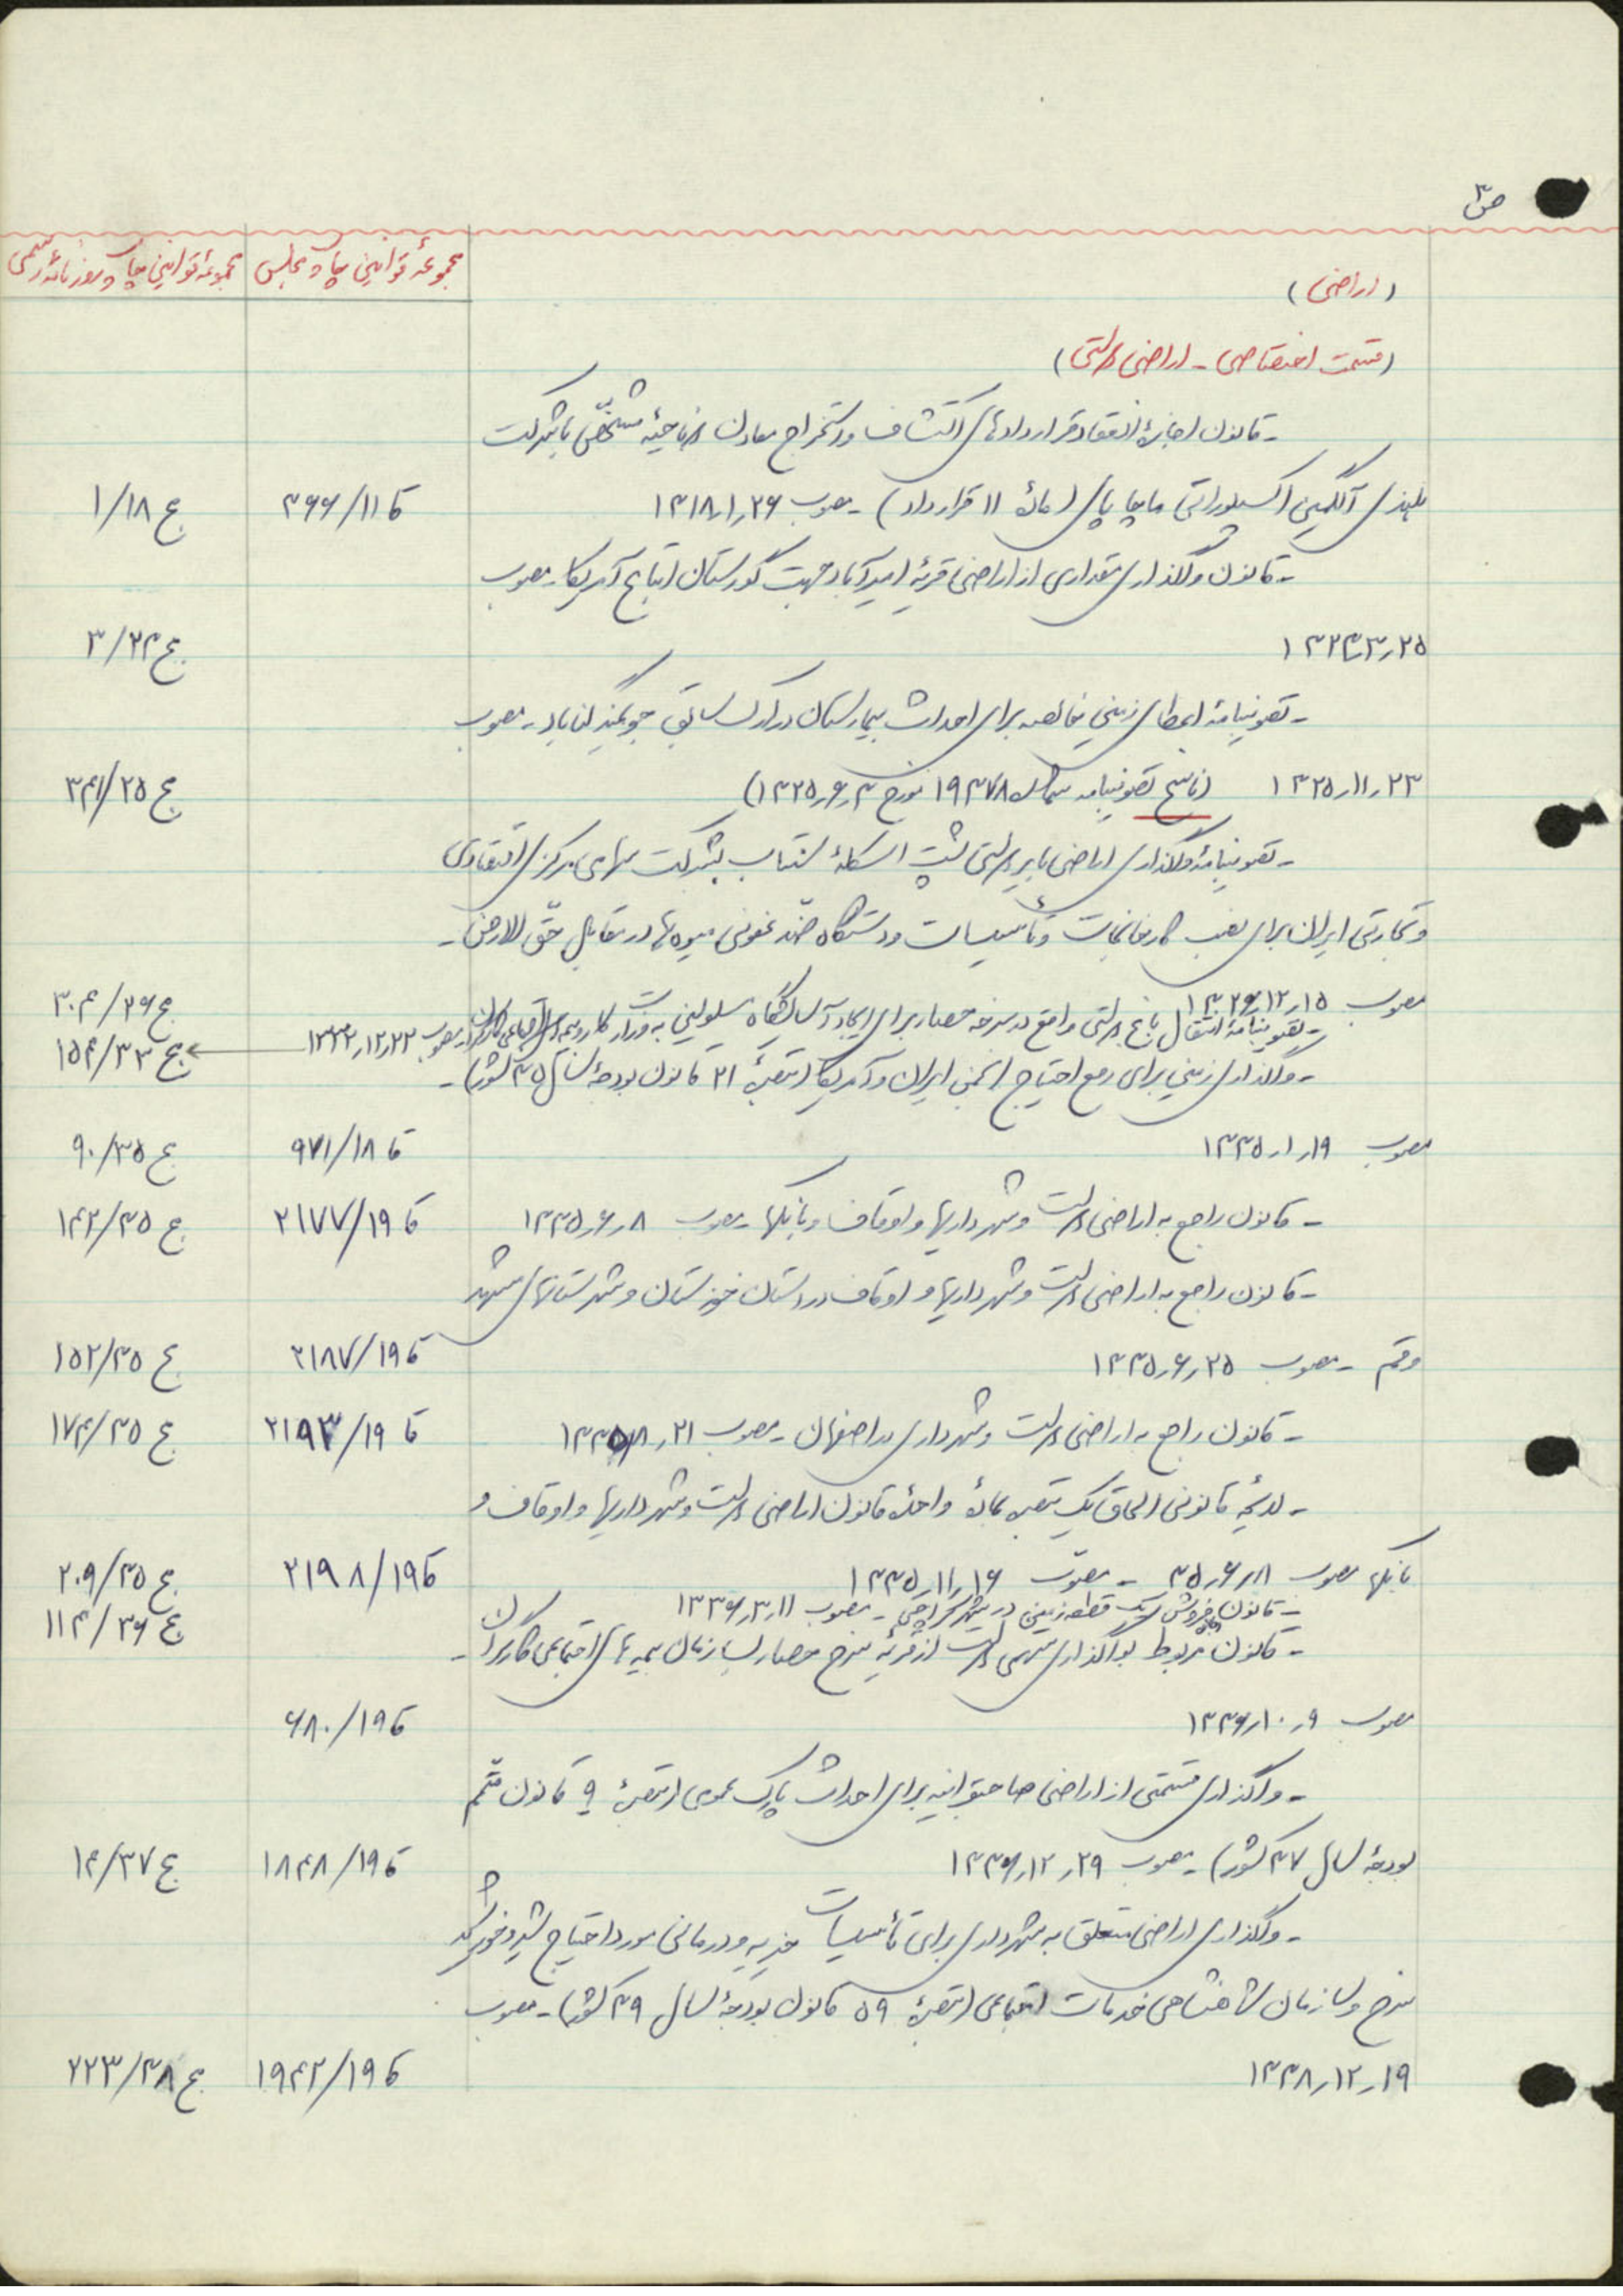 ص ۳
مجموعهٔ قوانین چاپ مجلس
مجموعهٔ قوانین چاپ روزنامهٔ رسمی
(اراضی)
(قسمت اختصاصی - اراضی دولتی)
- قانون اجازهٔ انعقاد قراردادهای اکتشاف و استخراج معادن در ناحیهٔ مشخّص با شرکت
هلندی آلگمینی اکسپلوراتی ماچاپای (مادهٔ ۱۱ قرارداد) - مصوب ۱۳۱۸٫۱٫۲۶ قا ۴۶۶/۱۱ ج ۱/۱۸
- قانون واگذاری مقداری از اراضی قریهٔ امیرآباد جهت گورستان اتباع آمریکا - مصوب
۱۳۲۴٫۳٫۲۵ ج ۳/۲۴
- تصویبنامهٔ اعطای زمین خالصه برای احداث بیمارستان در ارک سابق جویمند گناباد - مصوب
۱۳۲۵٫۱۱٫۲۳ (ناسخ تصویبنامه شمارهٔ ۱۹۴۷۸ مورخ ۱۳۲۵٫۶٫۴) ج ۳۴۱/۲۵
- تصویبنامهٔ واگذاری اراضی بایر دولتی پشت اسکلهٔ بشرکت سهامی مرکزی اقتصادی
و تجارتی ایران برای نصب کارخانجات و تأسیسات و دستگاه ضدّ عفونی میوه‌ها در مقابل حقّ الارض -
مصوب ۱۳۲۶٫۱۲٫۱۵ ج ۳۰۴/۲۶
- تصویبنامهٔ انتقال باغ دولتی واقع در سرخه حصار برای ایجاد آسایشگاه مسلولین به وزارت کار و بیمه‌های اجتماعی کارگران - مصوب ۱۳۳۳٫۱۲٫۲۳ ج ۱۵۴/۳۳
- واگذاری زمین برای رفع احتیاج انجمن ایران و آمریکا (تبصرهٔ ۲۱ قانون بودجهٔ سال ۳۵ کشور) -
مصوب ۱۳۳۵٫۱٫۱۹ قا ۹۷۱/۱۸ ج ۹۰/۳۵
- قانون راجع به اراضی دولت و شهرداریها و اوقاف و بانکها - مصوب ۱۳۳۵٫۶٫۸ قا ۲۱۷۷/۱۹ ج ۱۴۲/۳۵
- قانون راجع به اراضی دولت و شهرداریها و اوقاف در استان خوزستان و شهرستانهای مشهد
و قم - مصوب ۱۳۳۵٫۶٫۲۵ قا ۲۱۸۷/۱۹ ج ۱۵۲/۳۵
- قانون راجع به اراضی دولت و شهرداری در اصفهان - مصوب ۱۳۳۵٫۸٫۲۱ قا ۲۱۹۳/۱۹ ج ۱۷۴/۳۵
- لایحهٔ قانونی الحاق یک تبصره بمادهٔ واحدهٔ قانون اراضی دولت و شهرداریها و اوقاف و
بانکها مصوب ۳۵٫۶٫۸ - مصوّب ۱۳۳۵٫۱۱٫۱۶ قا ۲۱۹۸/۱۹ ج ۲۰۹/۳۵
- قانون اجازه فروش یک قطعه زمین در شهر کراچی - مصوب ۱۳۳۶٫۳٫۱۱ ج ۱۱۴/۳۶
- قانون مربوط بواگذاری سهمی دولت از قریهٔ سرخ حصار بسازمان بیمه‌های اجتماعی کارگران -
مصوب ۱۳۳۶٫۱۰٫۹ قا ۶۸۰/۱۹
- واگذاری قسمتی از اراضی صاحبقرانیه برای احداث پارک عمومی (تبصرهٔ ۹ قانون متمّم
بودجهٔ سال ۳۷ کشور) - مصوب ۱۳۳۶٫۱۲٫۲۹ قا ۱۸۴۸/۱۹ ج ۱۴/۳۷
- واگذاری اراضی متعلق به شهرداری برای تأسیسات خیریه و درمانی مورد احتیاج شیر و خورشید
سرخ و سازمان شاهنشاهی خدمات اجتماعی (تبصرهٔ ۵۹ قانون بودجهٔ سال ۳۹ کشور) - مصوب
۱۳۳۸٫۱۲٫۱۹ قا ۱۹۴۲/۱۹ ج ۲۲۳/۳۸